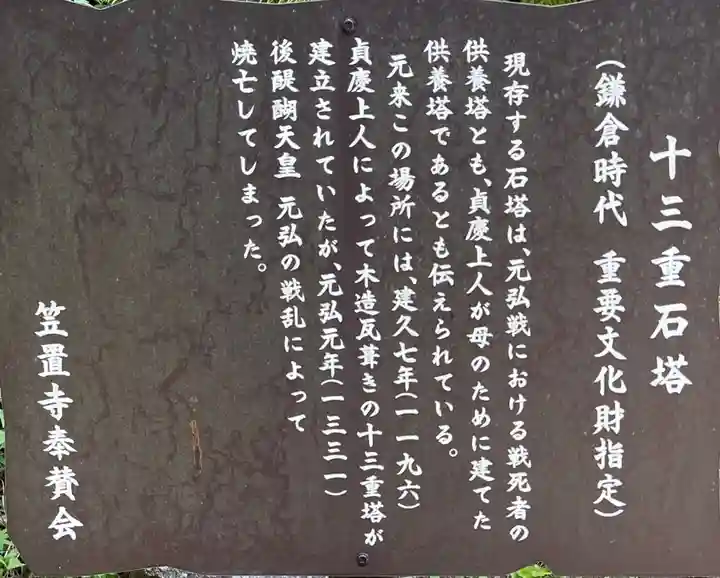 十三重石塔
(鎌倉時代　重要文化財指定)
現存する石塔は、元弘戦における戦死者の
供養塔とも、貞慶上人が母のために建てた
供養塔であるとも伝えられている。
元来この場所には、建久七年(一一九六)
貞慶上人によって木造瓦葺きの十三重塔が
建立されていたが、元弘元年(一三三一)
後醍醐天皇　元弘の戦乱によって
焼亡してしまった。
笠置寺奉賛会